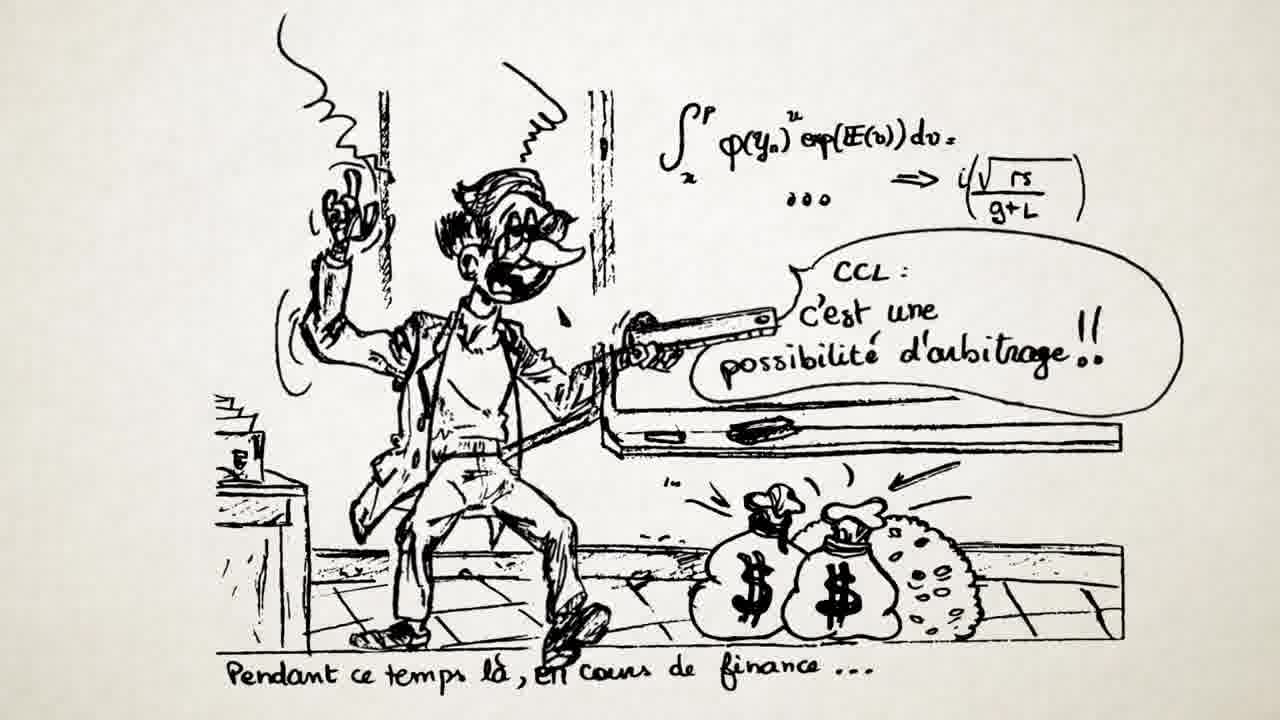 ∫ₓᵖ φ(Yₙ)ᵘ exp(E(v)) dv =
... ⇒ i(√rs / g+L)
CCL :
c'est une
possibilité d'arbitrage !!
$ $
Pendant ce temps là, en cours de finance ...